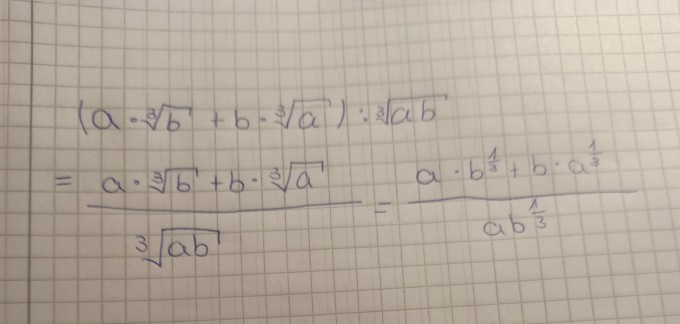 (a · ∛b + b · ∛a) : ∛ab
= (a · ∛b + b · ∛a) / ∛ab = (a · b^(1/3) + b · a^(1/3)) / ab^(1/3)